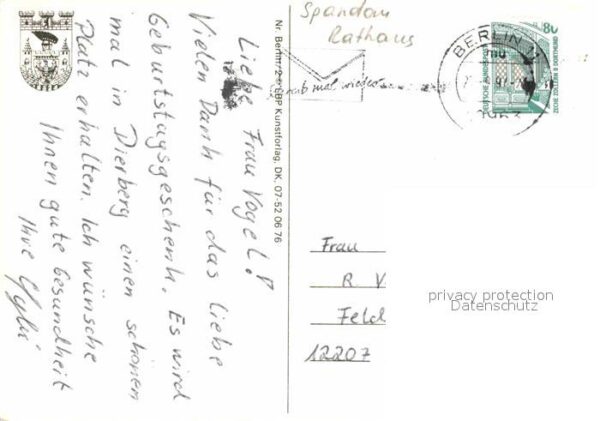 Liebe Frau Vogel!
Vielen Dank für das liebe
Geburtstagsgeschenk. Es wird
mal in Dierberg einen schönen
Platz erhalten. Ich wünsche
Ihnen gute Gesundheit
Ihre
Nr. Berlin 2 © LBP Kunstforlag, DK. 07-52 06 76
Spandau
Rathaus
mal wieder
BERLIN
80
DEUTSCHE BUNDESPOST
ZECHE ZOLLERN II DORTMUND
Frau
R V
Feld
12207
privacy protection
Datenschutz